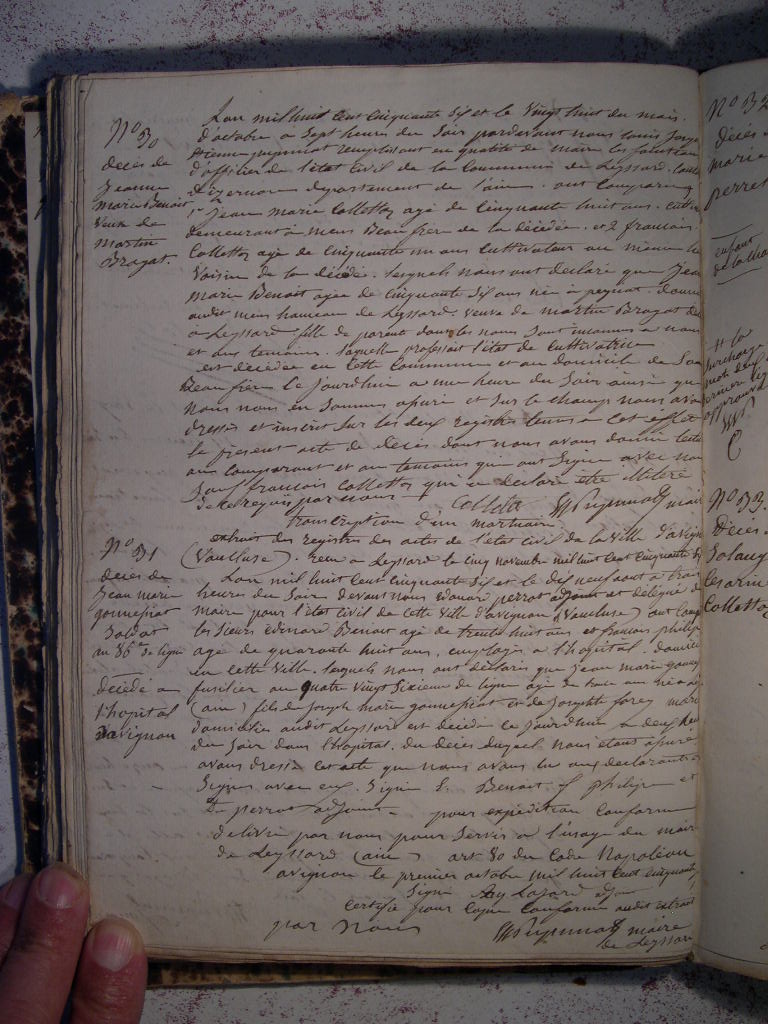 No 30
décès de
Jeanne
Marie Benoit
veuve de
Martin
Bragat.
Lan mil huit cent cinquante six et le vingt huit du mois
d'octobre a sept heures du soir pardevant nous louis
Etienne remplissant en qualité de maire les fonctions
d'officier de l'état civil de la Commune de Leyssard, Canton
d'izernore département de l'ain. ont comparu
1° Jean Marie Collettoz agé de cinquante huit ans. Cultiv
demeurant à mens Beau frère de la décédée. et 2 francois
Collettoz agé de cinquante un ans cultivateur au même lieu
voisin de la décédée. lesquels nous ont déclaré que Jean
Marie Benoit agée de cinquante six ans née à peyriat. domic
audit mens hameau de Leyssard. veuve de martin Bragat de
à Leyssard fille de parents dont les noms sont inconnus a nous
et aux temoins. laquelle professoit l'état de Cultivatrice
est décédée en cette Commune et au domicile de son
Beau frère le jourdhui a une heure du soir ainsi que
nous nous en sommes assuré et sur le champ nous avons
dressé et inscrit sur les deux registres tenus a cet effet
le présent acte de décès dont nous avons donné lecture
aux comparant et aux temoins qui ont signé avec nous
sauf francois Collettoz qui a déclaré être illitéré
de ce requis par nous
Colletta maire
transcription d'un mortuaire
No 31
décès de
Jean marie
gonnessiat
Soldat
au 86e de ligne
décédé a
l'hopital
d'avignon
extrait des registres des actes de l'état civil de la ville d'avign
(Vaucluse). recu a Leyssard le cinq novembre mil huit cent cinquante six
Lan mil huit cent cinquante six et le dix neuf aout a trois
heures du soir devant nous édouard perrot adjoint et délégué du
maire pour l'état civil de cette ville d'avignon (Vaucluse) ont comp
les sieurs Benoit agé de trente huit ans et francois philipe
agé de quarante huit ans, employés a l'hopital. domicil
en cette ville. lesquels nous ont déclarés que Jean marie gonnes
fusilier au quatre vingt sixieme de ligne agé de ans né a
(ain) fils de joseph marie gonnessiat et de Josephte
domiciliés audit Leyssard est décédé le jourdhui a deux heu
du soir dans l'hopital. du décès duquel nous étant assuré
avons dressé cet acte que nous avons lu aux declarants
signés avec eux. Signé E. Benoit f philipe et
E perrot adjoint pour expédition conforme
délivré par nous pour servir a l'usage du maire
de Leyssard (ain) art 80 du code Napoléon
avignon le premier octobre mil huit cent cinquante
Signé adjoint
certifié pour copie conforme audit extrait
par nous
maire
de Leyssard
No 32
décès
marie
perret
enfant
No 33.
décès
Collettoz